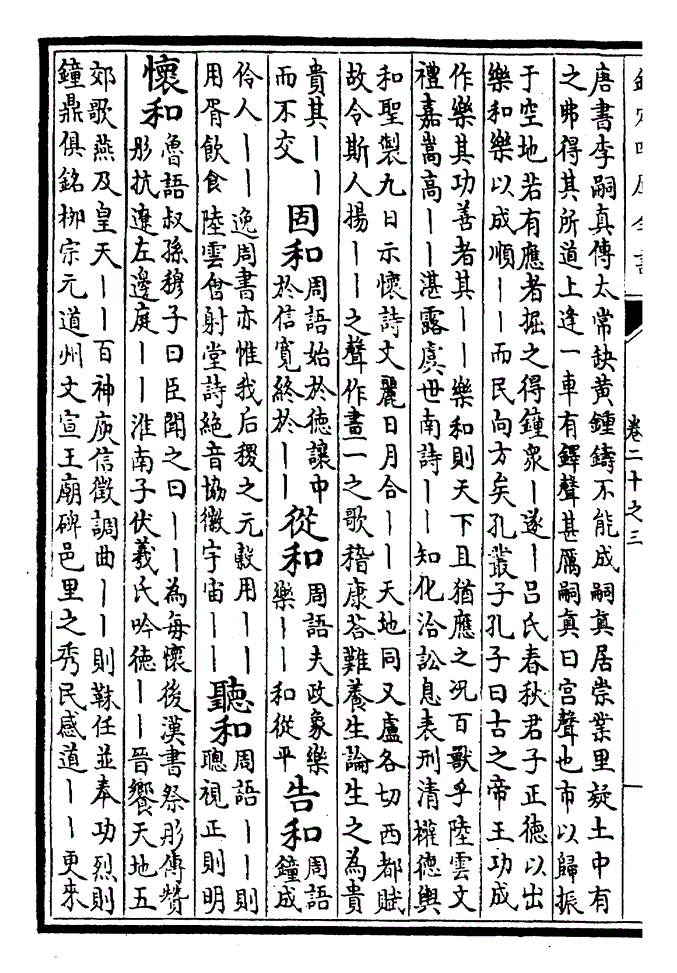 卷二十之三
唐書李嗣真傳太常缺黄鍾鑄不能成嗣真居崇業里疑土中有
之弗得其所道上逢一車有鐸聲甚厲嗣真曰宫聲也市以歸振
于空地若有應者掘之得鐘衆丨遂丨吕氏春秋君子正德以出
樂和樂以成順丨丨而民向方矣孔叢子孔子曰古之帝王功成
作樂其功善者其丨丨樂和則天下且猶應之况百獸乎陸雲文
禮嘉嵩高丨丨湛露虞世南詩丨丨知化洽訟息表刑清權德輿
和聖製九日示懷詩文麗日月合丨丨天地同又盧各切西都賦
故令斯人揚丨丨之聲作畫一之歌稽康荅難養生論生之為貴
貴其丨丨
而不交
固和
周語始於德讓中
於信寛終於丨丨
從和
周語夫政象樂
樂丨丨和從平
告和
周語
鐘成
伶人丨丨逸周書亦惟我后稷之元穀用丨丨
用胥飲食陸雲㑹射堂詩絶音協徽宇宙丨丨
聽和
周語丨丨則
聰視正則明
懷和
魯語叔孫穆子曰臣聞之曰丨丨為每懷後漢書祭肜傳贊
肜抗遼左邊庭丨丨淮南子伏羲氏吟德丨丨晉饗天地五
郊歌燕及皇天丨丨百神庾信徵調曲丨丨則韎任並奉功烈則
鐘鼎俱銘栁宗元道州文宣王廟碑邑里之秀民感道丨丨更來